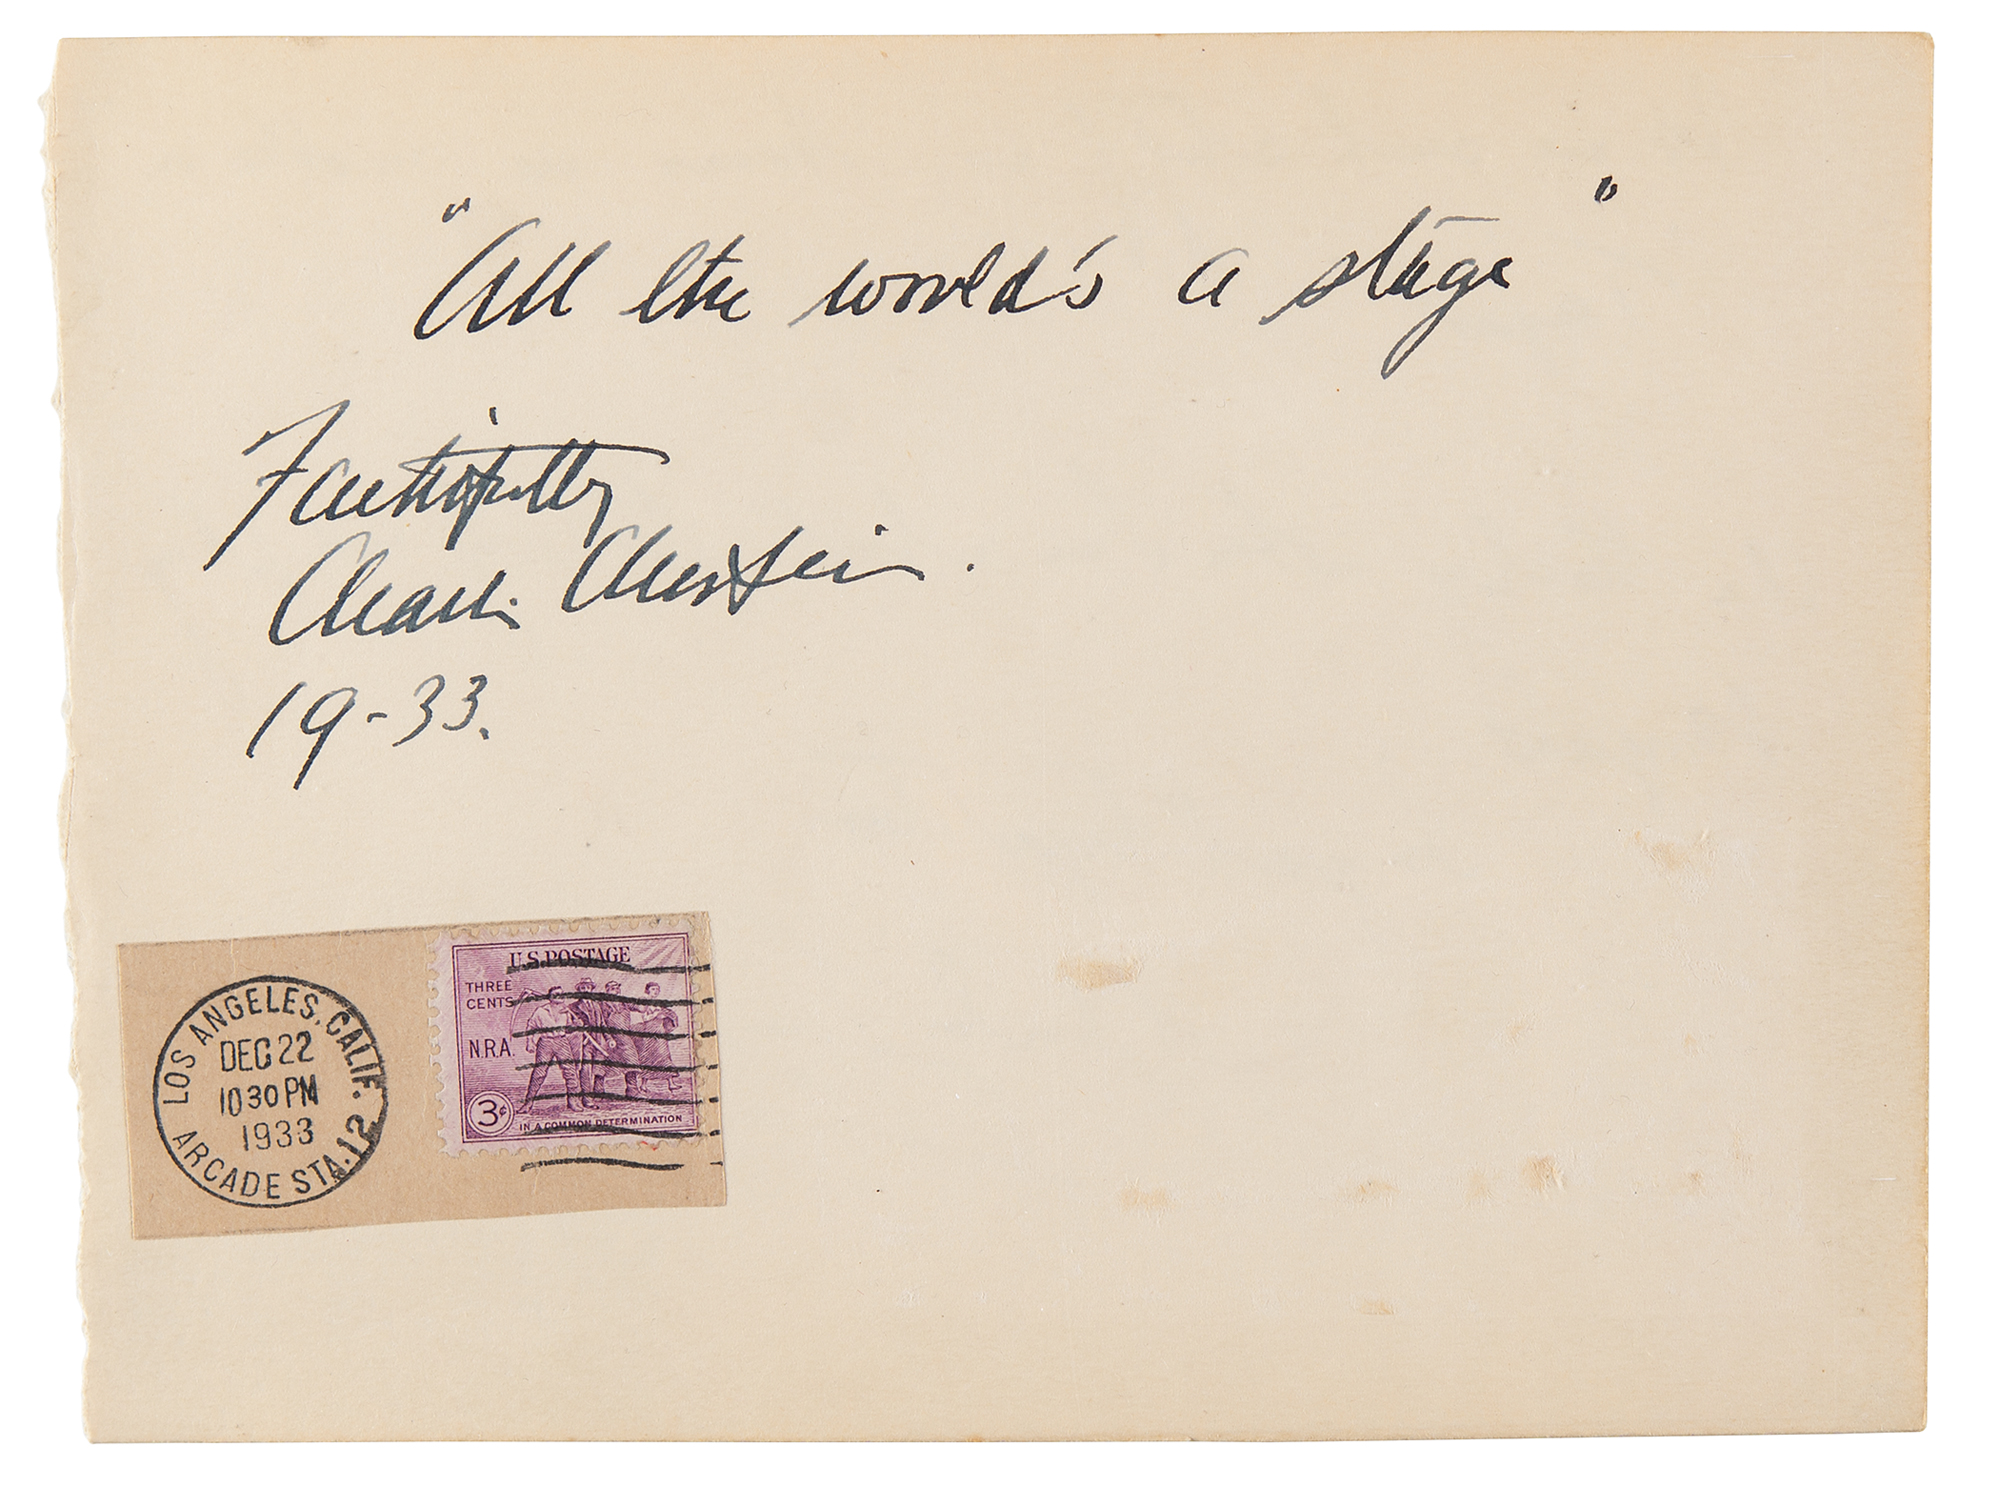 "All the world's a stage"
Faithfully
19-33.
LOS ANGELES, CALIF.
DEC 22
10 30 PM
1933
ARCADE STA. 12
U.S. POSTAGE
THREE
CENTS
N.R.A.
3¢
IN A COMMON DETERMINATION